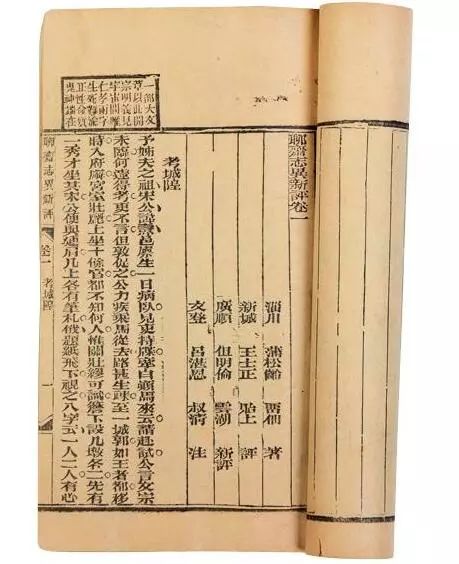 聊齋志異新評卷一
淄川 蒲松齡 留仙 著
新城 王士正 貽上 評
廣順 但明倫 雲湖 新評
文登 呂湛恩 叔清 注
考城隍
予姊夫之祖宋公諱燾邑廩生一日病臥見吏持牒牽白顛馬來云請赴試公言文宗
未臨何遽得考吏不言但敦促之公力疾乘馬從去路甚生疎至一城郭如王者都移
時入府廨宮室壯麗上坐十餘官都不知何人惟關壯繆可識簷下設几墩各二先有
一秀才坐其末公便與連肩几上各有筆札俄題紙飛下視之八字云一人二人有心
一部大文
章以此開
宗明義見
宇宙間惟
仁孝兩字
生死難渝
正性命質
鬼神端在
聊齋志異新評 卷一 考城隍 一